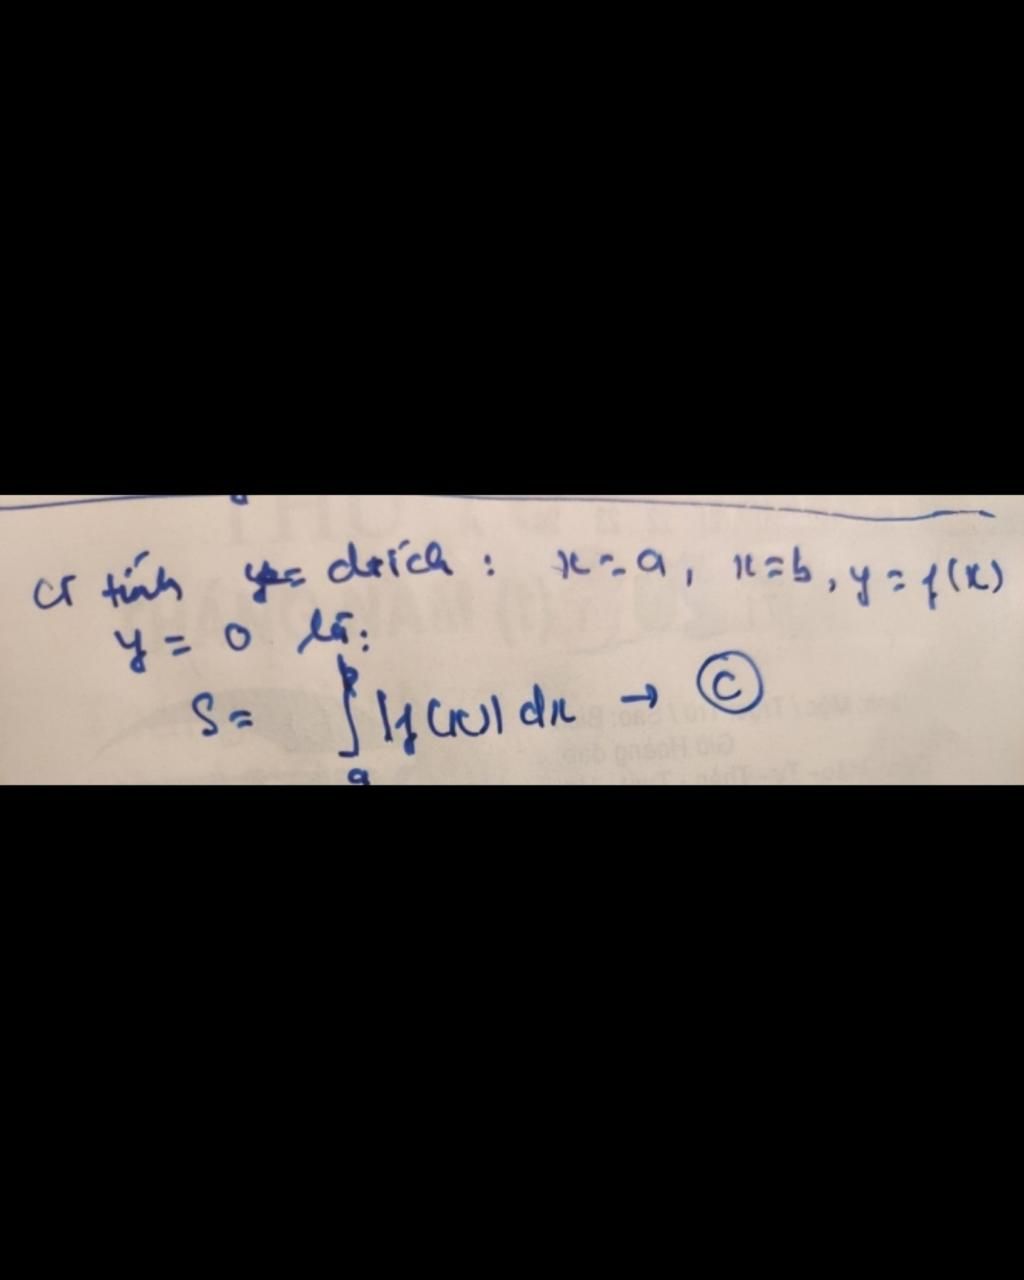 CT tính d.tích : x = a, x = b, y = f(x)
y = 0 là:
S = ∫ₐᵇ |f(x)| dx → Ⓒ